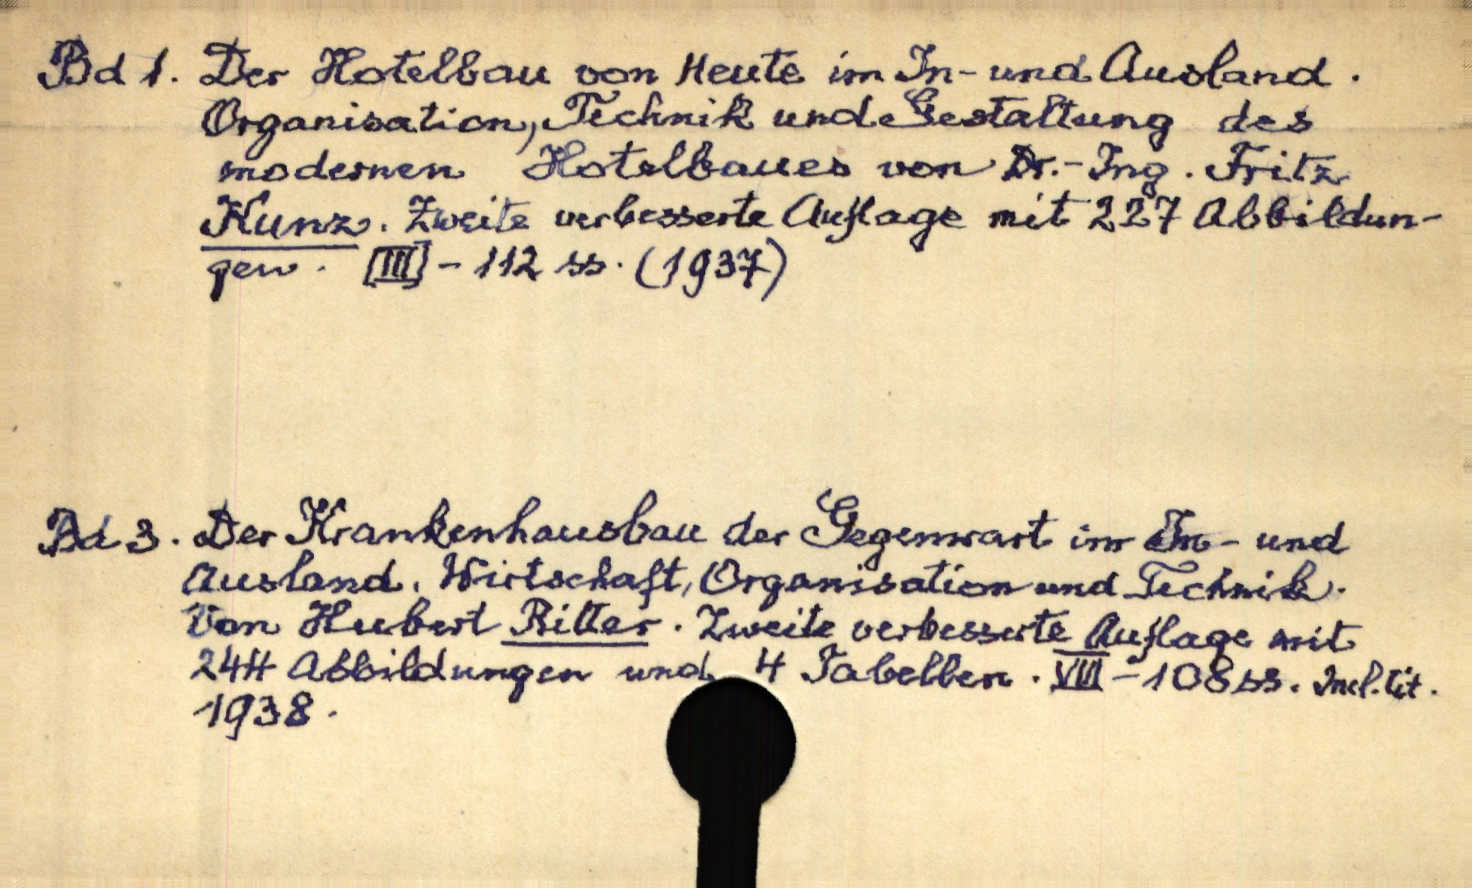 Bd 1. Der Hotelbau von Heute im In- und Ausland.
Organisation, Technik und Gestaltung des
modernen Hotelbaues von Dr.-Ing. Fritz
Kunz. Zweite verbesserte Auflage mit 227 Abbildun-
gen. [III] - 112 ss. (1937)
Bd 3. Der Krankenhausbau der Gegenwart im In- und
Ausland. Wirtschaft, Organisation und Technik.
Von Hubert Ritter. Zweite verbesserte Auflage mit
244 Abbildungen und 4 Tabellen. VIII - 108 ss. Incl. tit.
1938.